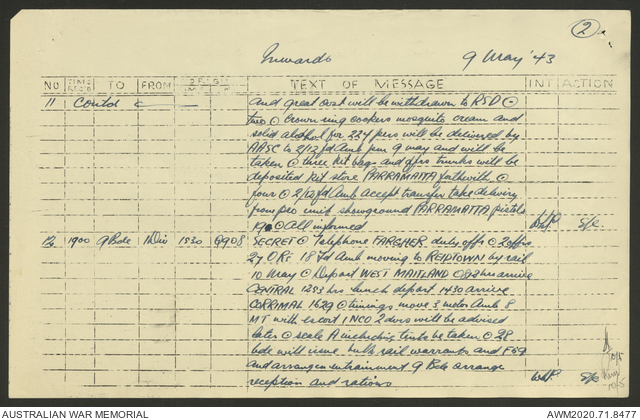 ②
Inwards 9 May '43
NO TIME REC'D TO FROM TEXT OF MESSAGE INT ACTION
11 Contd and great coat will be withdrawn to RSD ⊙
two ⊙ Crown ring cookers mosquito cream and
solid alcohol for 224 pers will be delivered by
AASC to 2/12 fd Amb pm 9 May and will be
taken ⊙ three Kit bags and offrs trunks will be
deposited Kit store PARRAMATTA forthwith ⊙
four ⊙ 2/12 fd Amb accept transfer take delivery
from unit showground PARRAMATTA pistols
19 ⊙ All informed
12 1900 9 Bde 1 Div 1530 G908 SECRET ⊙ Telephone FARGHER duty offr ⊙ 2 offrs
27 ORs 18 Fd Amb moving to REIDTOWN by rail
10 May ⊙ Depart WEST MAITLAND hrs arrive
CENTRAL 1253 hrs lunch depart 1430 arrive
CORRIMAL 1629 ⊙ timings move 3 motor Amb 8
MT with escort 1 NCO 2 will be advised
later ⊙ scale A including tents be taken ⊙ 28
bde will issue bulk rail warrants and
and arrange entrainment 9 Bde arrange
reception and rations
AUSTRALIAN WAR MEMORIAL AWM2020.71.8477